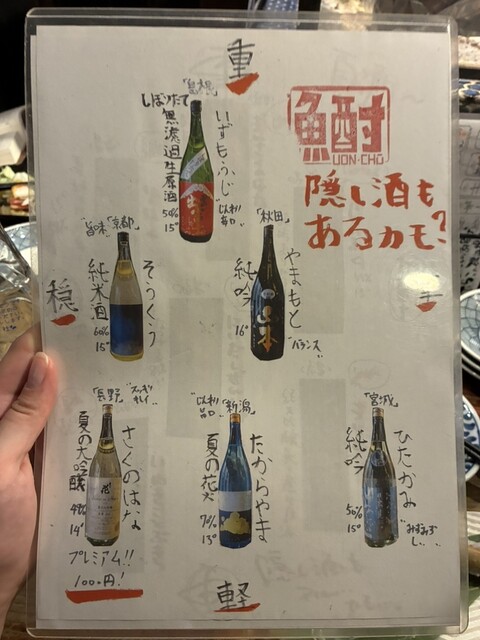 重
魚酎
UON-CHU
隠し酒も
あるカモ?
「島根」
しぼりたて
無濾過生原酒
50%
15°
いずもふじ
じんわり
旨口
「秋田」
やまもと
純吟
16°
バランス
穏
旨味
「京都」
そうくう
純米酒
60%
15°
「長野」
スッキリ
キレイ
さくのはな
夏の大吟醸
14°
プレミアム!!
100円!
「新潟」
旨口
たからやま
夏の花火
70%
13°
「宮城」
ひたかみ
純吟
50%
15°
みずみず
しい
軽